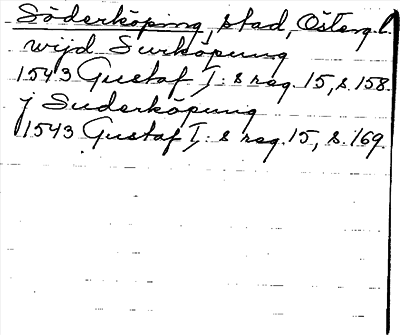 Söderköping, stad, Österg.l.
wijd Surköpung
1543 Gustaf I:s reg. 15, s. 158.
j Suderköpung
1543 Gustaf I:s reg. 15, s. 169.